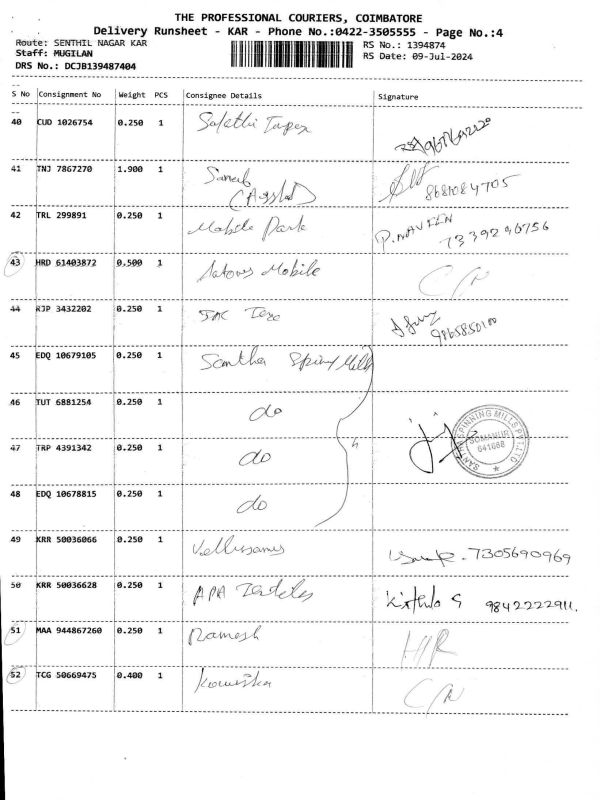 THE PROFESSIONAL COURIERS, COIMBATORE
Delivery Runsheet - KAR - Phone No.:0422-3505555 - Page No.:4
Route: SENTHIL NAGAR KAR
RS No.: 1394874
Staff: MUGILAN
RS Date: 09-Jul-2024
DRS No.: DCJB139487404
S No Consignment No Weight PCS Consignee Details Signature
40 CUD 1026754 0.250 1
41 TNJ 7867270 1.900 1 8681084705
42 TRL 299891 0.250 1 Mobile Park P. NAVEEN 7339296756
43 HRD 61403872 0.500 1 Mobile C/N
44 RJP 3432202 0.250 1 9865850100
45 EDQ 10679105 0.250 1 Santha Spinng Mills
46 TUT 6881254 0.250 1 do
47 TRP 4391342 0.250 1 do
SPINNING MILLS PVT LTD SOMANUR 641668
48 EDQ 10678815 0.250 1 do
49 KRR 50036066 0.250 1 7305690969
50 KRR 50036628 0.250 1 APA 9842222911.
51 MAA 944867260 0.250 1 Ramesh
52 TCG 50669475 0.400 1 C/N